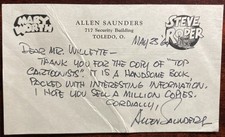 MARY WORTH
ALLEN SAUNDERS
717 Security Building
TOLEDO, O.
STEVE ROPER
MAY 23
DEAR MR. WILLETTE—
THANK YOU FOR THE COPY OF "TOP
CARTOONISTS". IT IS A HANDSOME BOOK,
PACKED WITH INTERESTING INFORMATION.
I HOPE YOU SELL A MILLION COPIES.
CORDIALLY,
ALLEN SAUNDERS